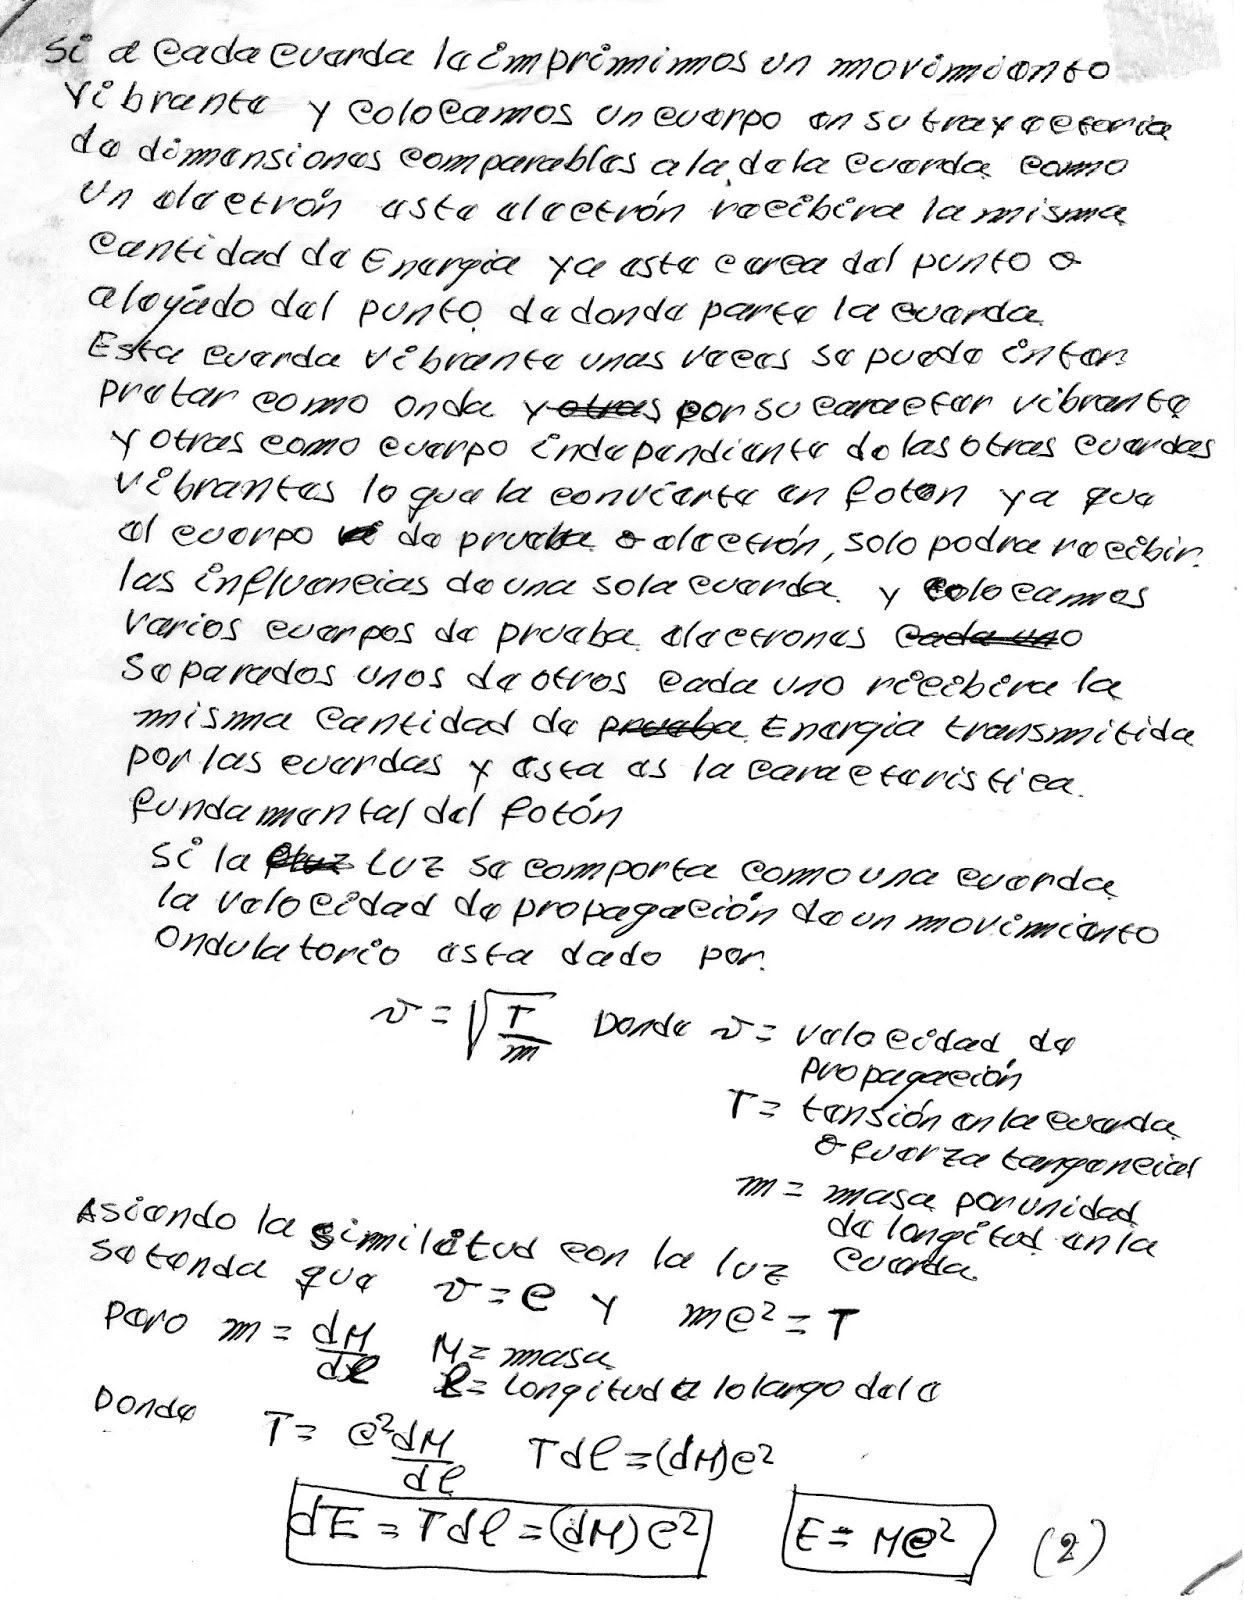 Si a cada cuerda le imprimimos un movimiento
vibrante y colocamos un cuerpo en su trayectoria
de dimensiones comparables a la de la cuerda como
un electrón este electrón recibira la misma
cantidad de Energia ya este cerca del punto o
alejado del punto de donde parte la cuerda
Esta cuerda vibrante unas veces se puede inter
pretar como onda y otras por su caracter vibrante
y otras como cuerpo independiente de las otras cuerdas
vibrantes lo que la convierte en foton ya que
el cuerpo de prueba o electrón, solo podra recibir
las influencias de una sola cuerda y colocamos
varios cuerpos de prueba electrones cada uno
separados unos de otros cada uno recibira la
misma cantidad de prueba Energia transmitida
por las cuerdas y esta es la caracteristica
fundamental del fotón
Si la luz Luz se comporta como una cuerda
la velocidad de propagación de un movimiento
ondulatorio esta dado por
v = √(T/m) Donde v = velocidad de
propagación
T = tensión en la cuerda
o fuerza tangencial
m = masa por unidad
de longitud en la
cuerda
Asiendo la similitud con la luz
se tendra que v = c y mc² = T
Pero m = dM/dℓ M = masa
ℓ = longitud a lo largo de la
Donde T = c²dM/dℓ Tdℓ = (dM)c²
dE = Tdℓ = (dM)c² E = Mc² (2)